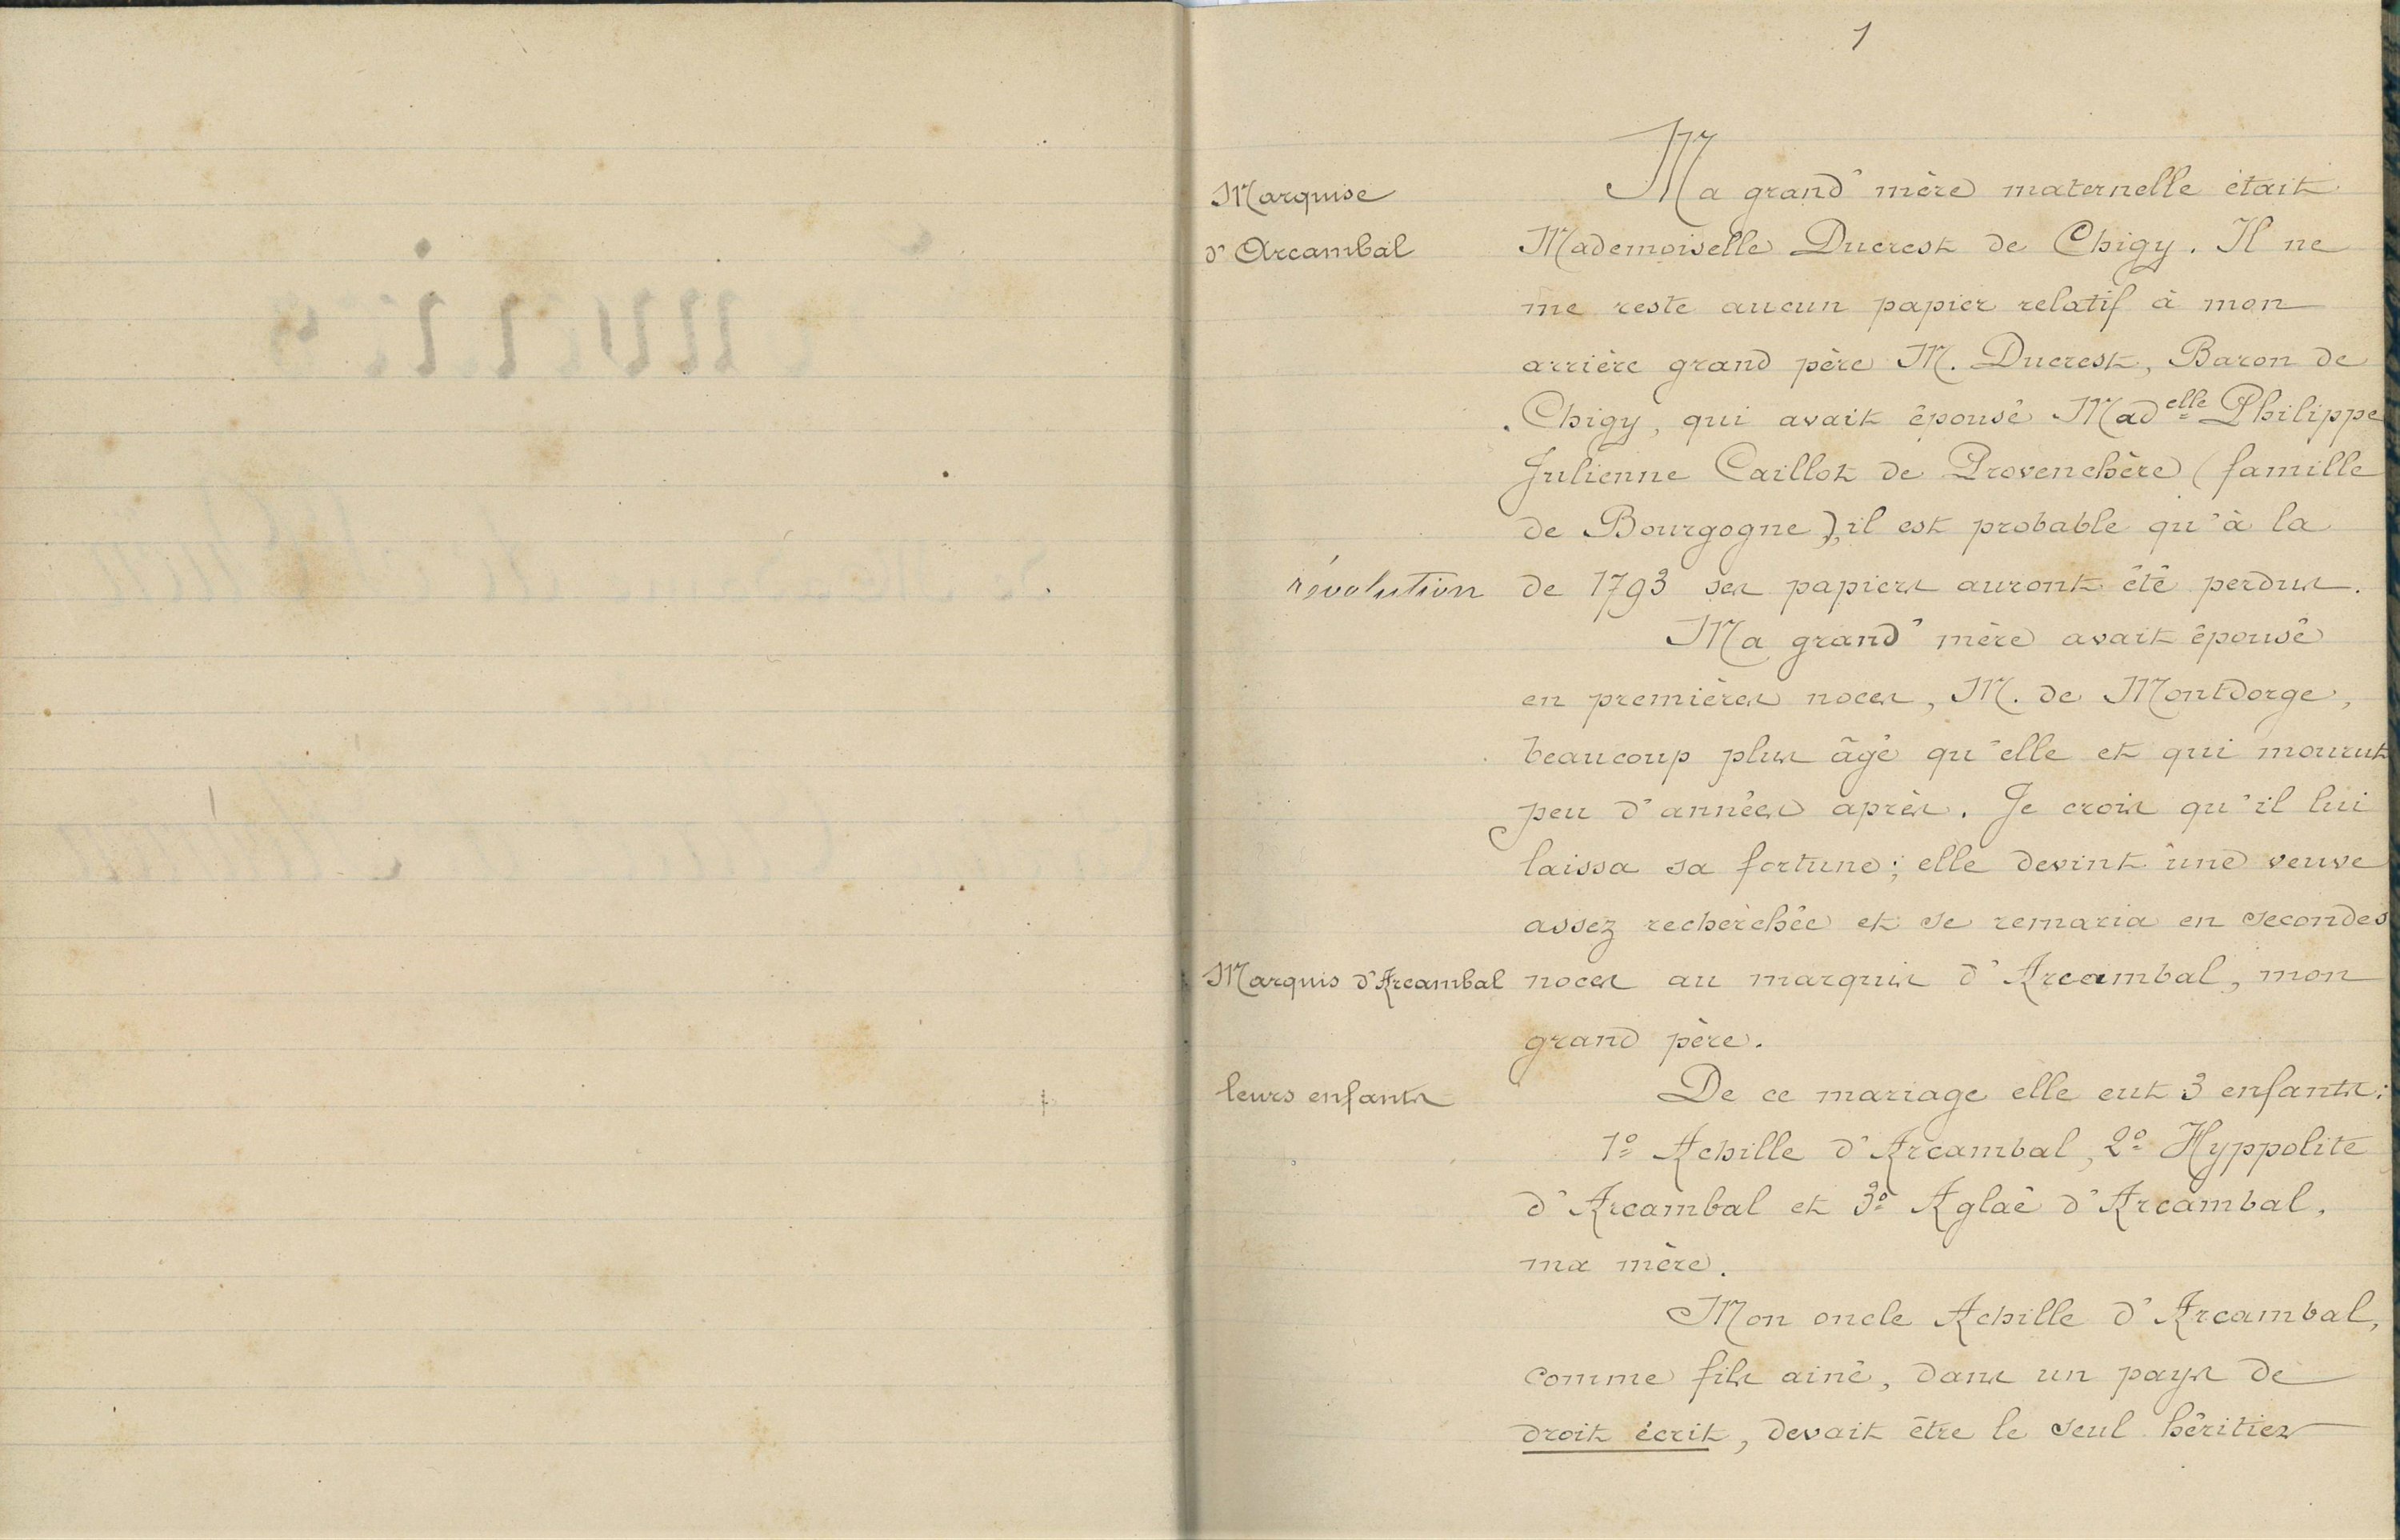 1
Marquise
d'Arcambal
Ma grand'mère maternelle était
Mademoiselle Ducrest de Chigy. Il ne
me reste aucun papier relatif à mon
arrière grand père M. Ducrest, Baron de
Chigy, qui avait épousé Madelle Philippe
Julienne Caillot de Provenchère (famille
de Bourgogne), il est probable qu'à la
révolution de 1793 ses papiers auront été perdus.
Ma grand'mère avait épousé
en premières noces, M. de Montdorge,
beaucoup plus âgé qu'elle et qui mourut
peu d'années après. Je crois qu'il lui
laissa sa fortune; elle devint une veuve
assez recherchée et se remaria en secondes
Marquis d'Arcambal
noces au marquis d'Arcambal, mon
grand père.
leurs enfants
De ce mariage elle eut 3 enfants:
1º Achille d'Arcambal, 2º Hyppolite
d'Arcambal et 3º Aglaé d'Arcambal,
ma mère.
Mon oncle Achille d'Arcambal,
comme fils ainé, dans un pays de
droit écrit, devait être le seul héritier